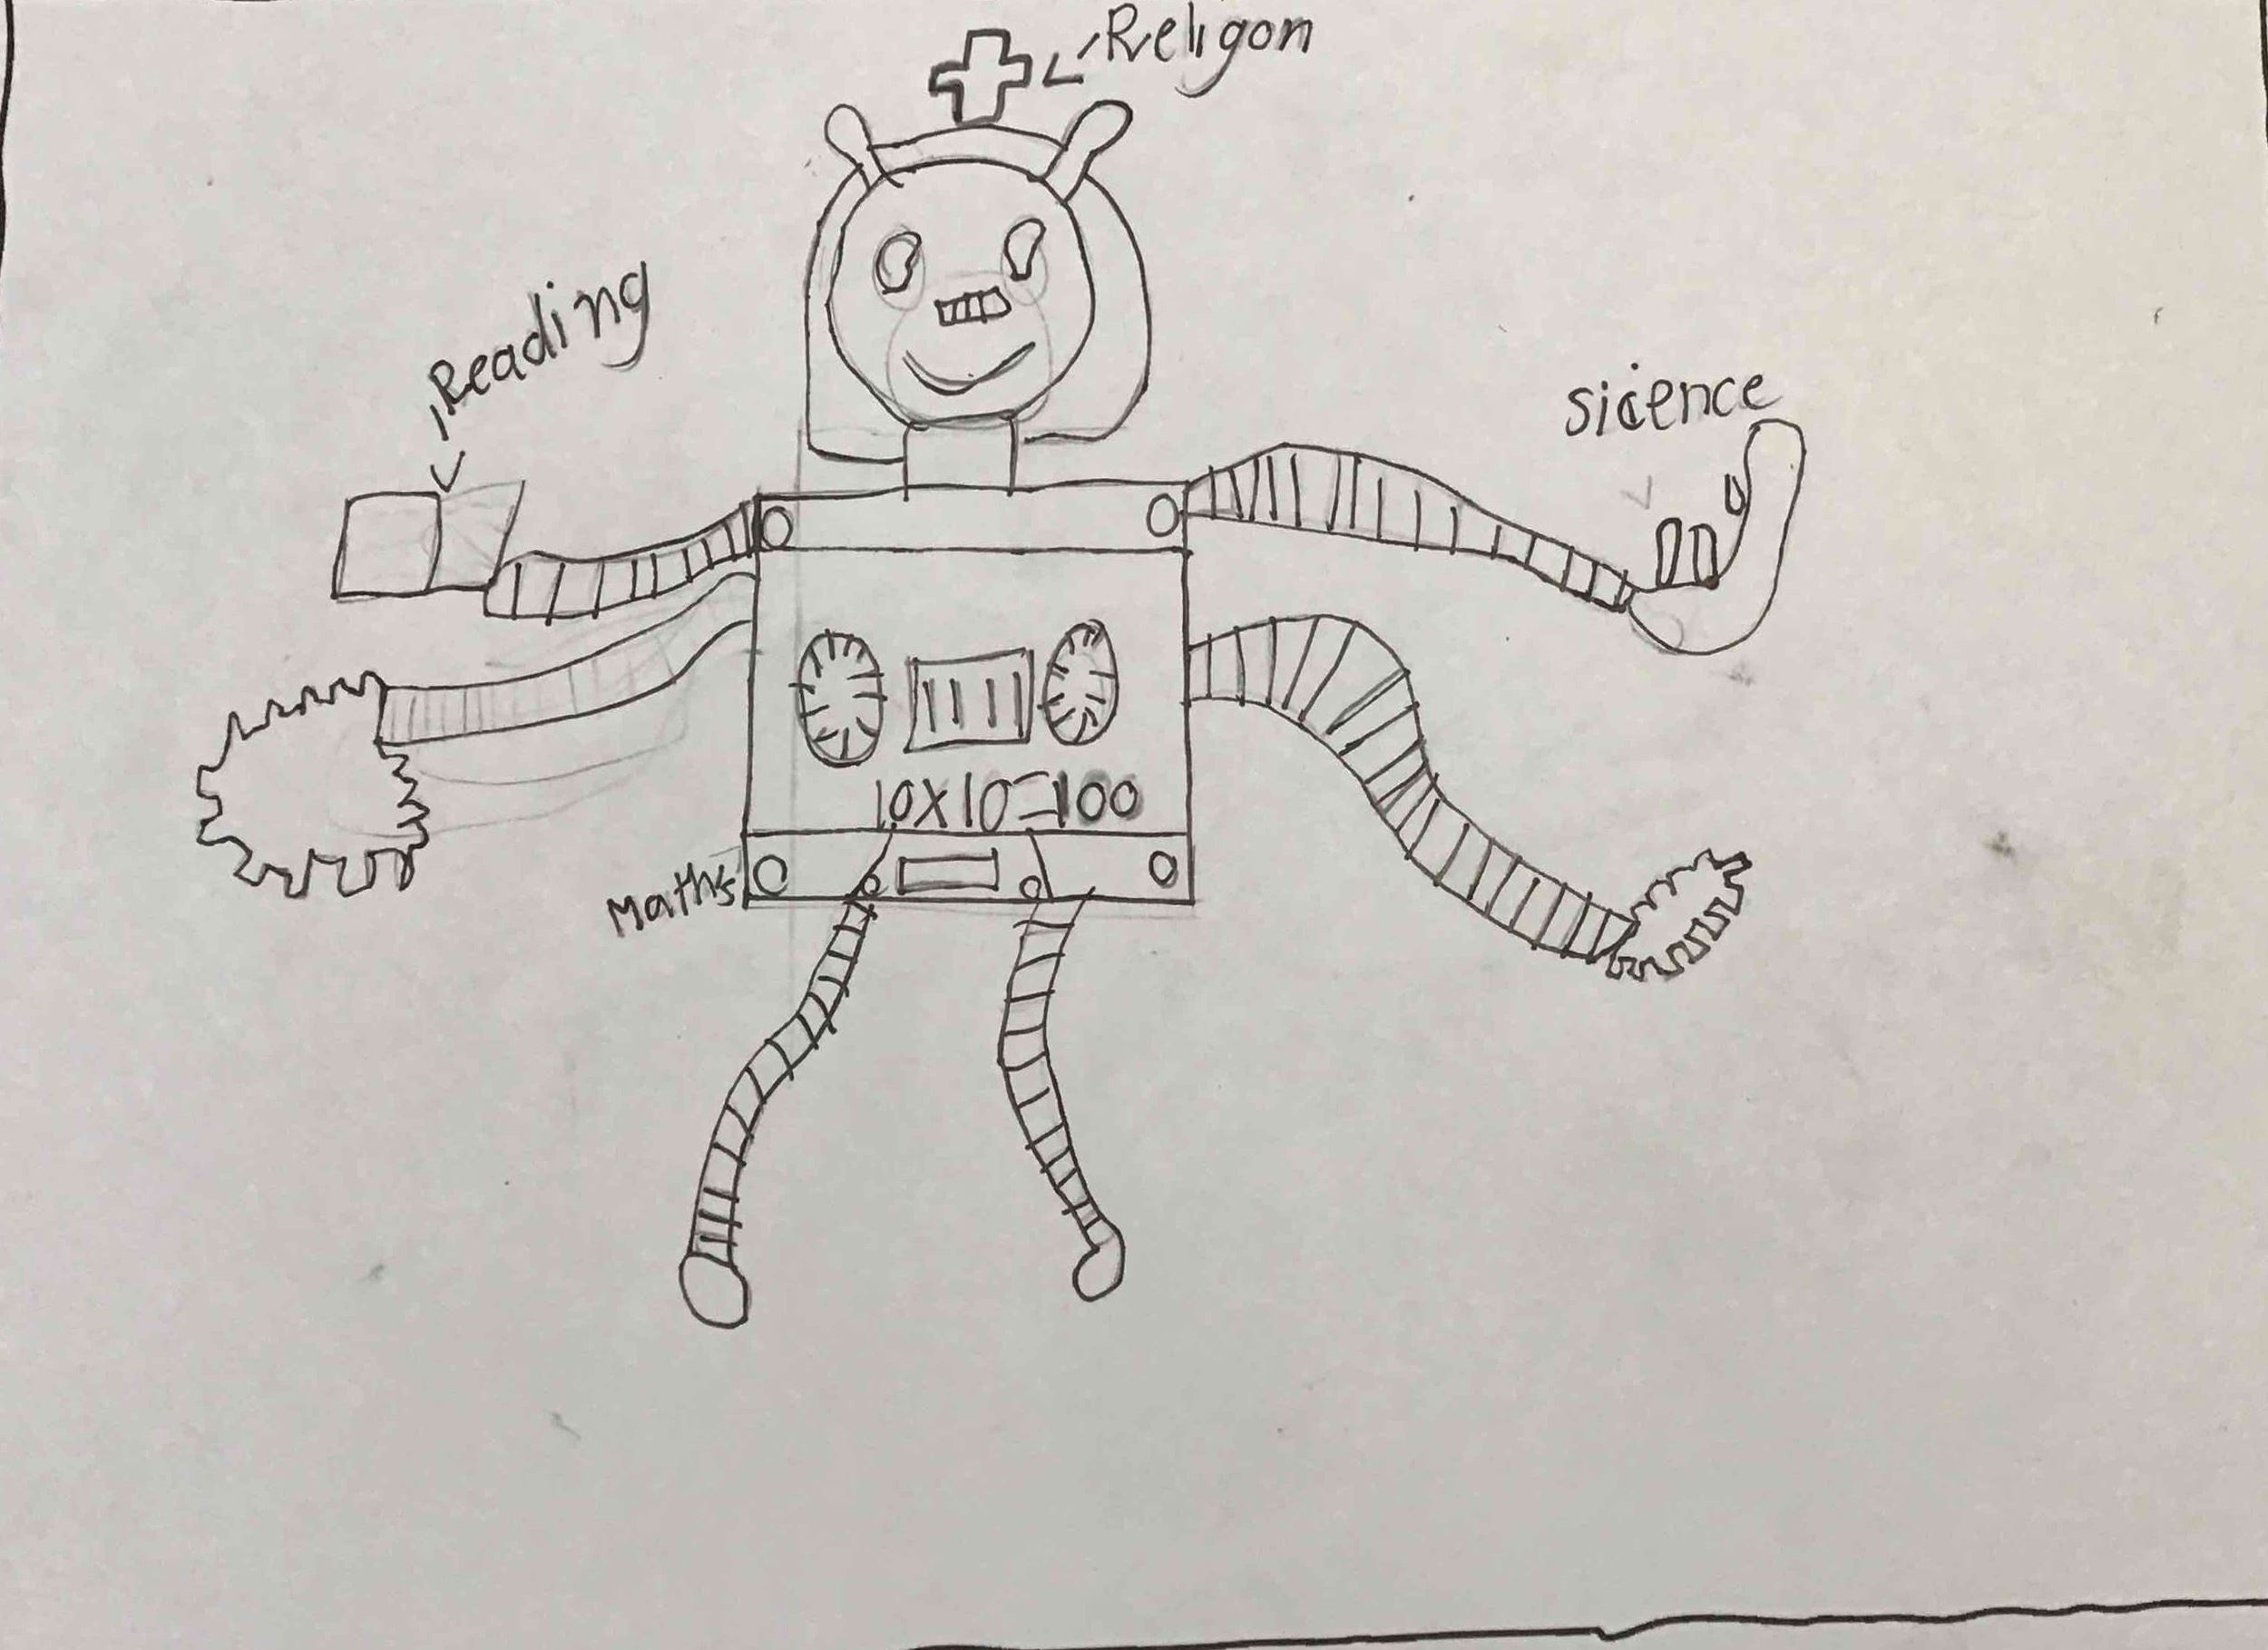 Religon
Reading
sicence
10x10=100
Maths